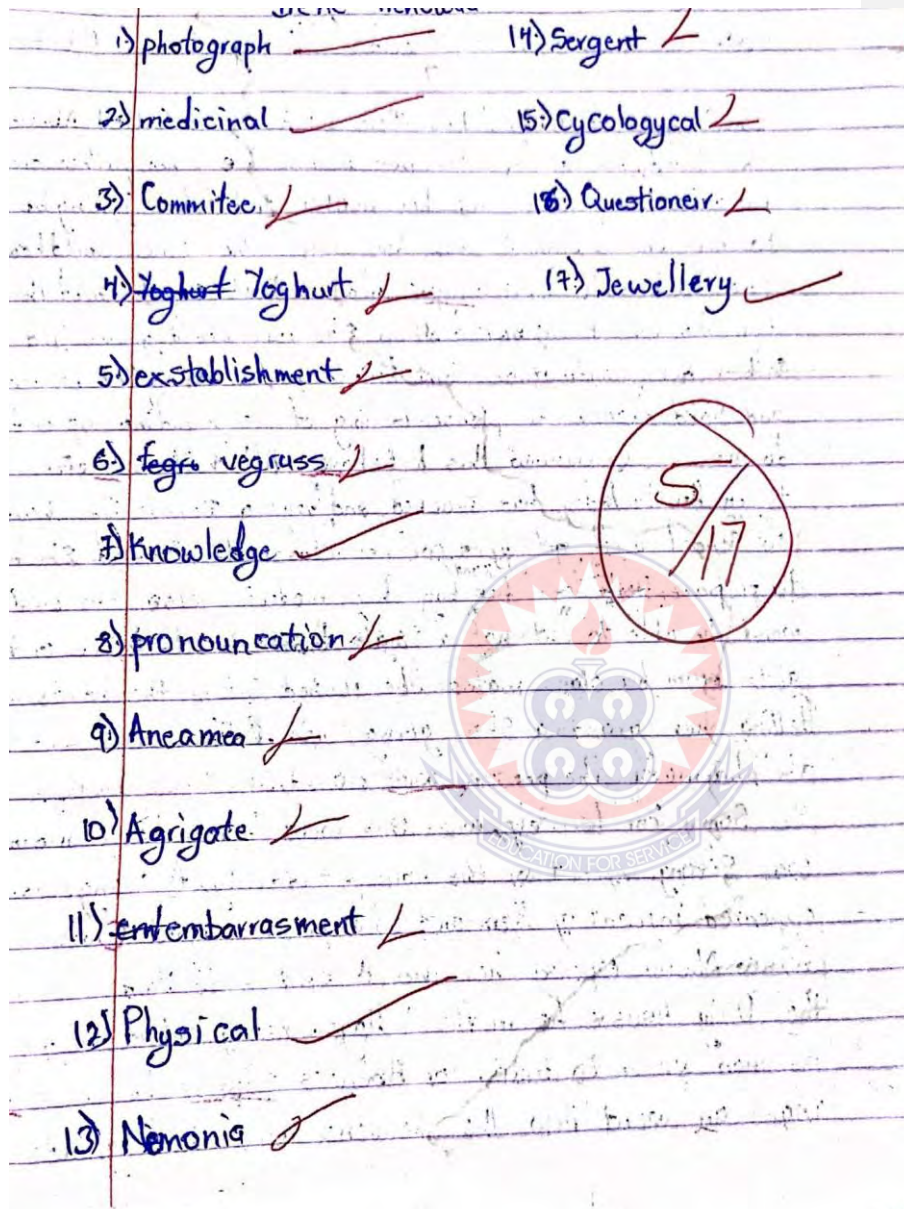 1.) photograph
2.) medicinal
3.) Commitee
4.) Yoghurt Yoghurt
5.) exstablishment
6.) fegro vegrass
7.) Knowledge
8.) pronouncation
9.) Aneamea
10) Agrigate
11.) emt embarrasment
12) Physical
13) Nemonia
14.) Sergent
15.) Cycologycal
16.) Questioneir
17.) Jewellery
5/17
EDUCATION FOR SERVICE